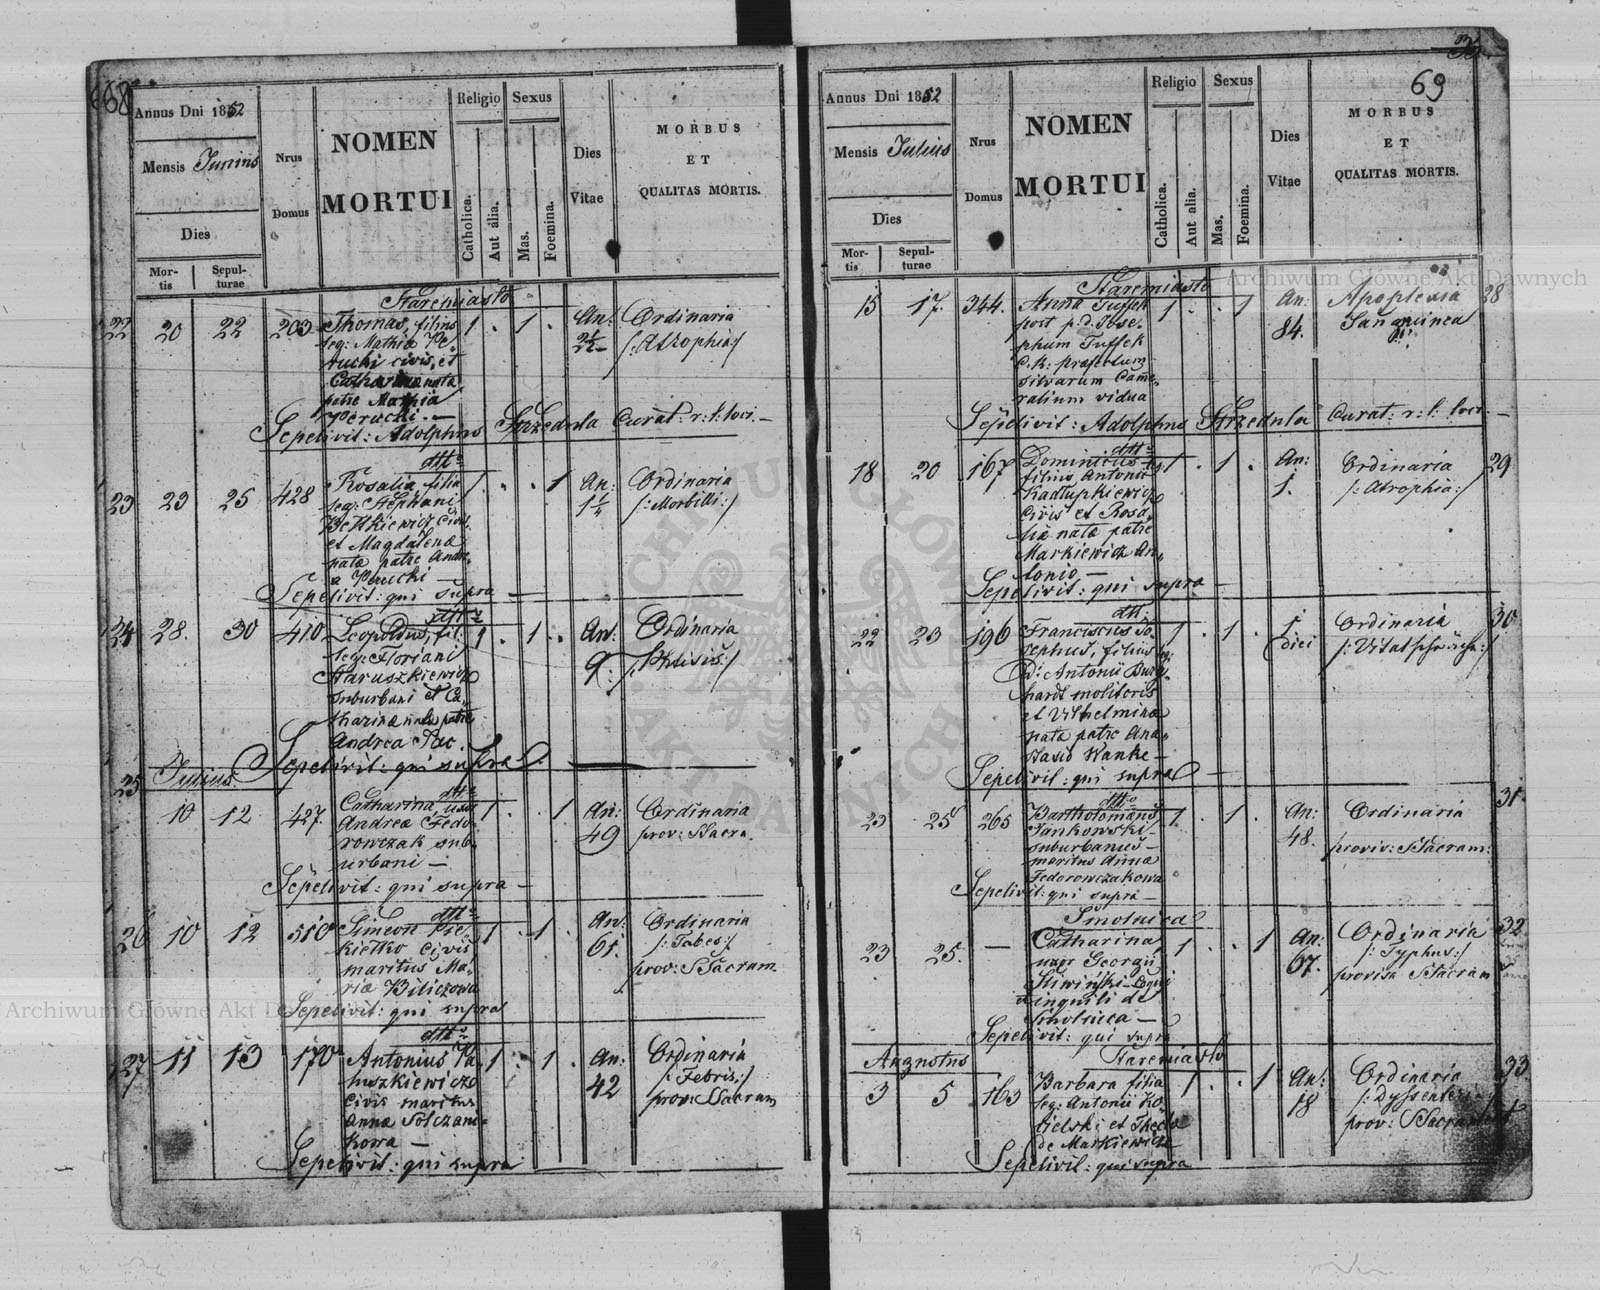 68
Annus Dni 1852
Mensis Junius
Dies
Mor-
tis
Sepul-
turae
Nrus
Domus
NOMEN
MORTUI
Religio
Catholica.
Aut alia.
Sexus
Mas.
Foemina.
Dies
Vitae
MORBUS
ET
QUALITAS MORTIS.
Staremiasto
22 20 22 203 Thomas, filius 1 . 1 . An: Ordinaria
leg: Mathiæ Pe- 2 /:Atrophia:/
rucki civis, et
Catharina nata
patre Mathia
Perucki. —
Sepelivit: Adolphus Strzedula Curat: r: l: loci. —
dtto
23 23 25 428 Rosalia filia 1 . . 1 An: Ordinaria
leg: Stephani 1¼ /:Morbilli:/
Petkiewicz Civis
et Magdalena
nata patre Andre-
a Perucki —
Sepelivit: qui supra —
dtto
24 28. 30 410 Leopoldus, fil: 1 . 1 . An: Ordinaria
leg: Floriani 9. /:Phtisis:/
Staruszkiewicz
suburbani et Ca-
tharina nata patre
Andrea Pac.
Sepelivit: qui supra. —
25 Julius.
dtto
10 12 427. Catharina uxor 1 . . 1 An: Ordinaria
Andreæ Fedo- 49 prov: SSacra.
rowczak sub-
urbani —
Sepelivit: qui supra —
dtto
26 10 12 510 Simeon Pie- 1 . 1 . An: Ordinaria
kiełko Civis 61. /:Tabes:/
maritus Ma- prov: SSacram.
riæ Biliczowa
Sepelivit: qui supra
dtto
27 11 13 170 Antonius Pa- 1 . 1 . An: Ordinaria
luszkiewicz 42 /:Febris:/
Civis maritus prov: SSacram
Anna Tolczani-
kowa —
Sepelivit: qui supra
69
Annus Dni 1852
Mensis Julius
Dies
Mor-
tis
Sepul-
turae
Nrus
Domus
NOMEN
MORTUI
Religio
Catholica.
Aut alia.
Sexus
Mas.
Foemina.
Dies
Vitae
MORBUS
ET
QUALITAS MORTIS.
Staremiasto
15 17. 344. Anna Tuffek 1 . . 1 An: Apoplexia 28
post p. d. Jose- 84. Sanguinea
phum Tuffek
C. k: præfectum
silvarum Came-
ralium vidua
Sepelivit: Adolphus Strzedula Curat: r: l: loci. —
dtto
18 20 167 Dominicus 1 . 1 . An: Ordinaria 29
filius Antonii 1. /:Atrophia:/
Kadłupkiewicz
Civis et Rosa-
lia nata patre
Markiewicz An-
tonio —
Sepelivit: qui supra —
dtto
22 23 196 Franciscus Jo- 1 . 1 . 1 Ordinaria 30
sephus, filius leg: diei /:Vitalschwäche:/
Di: Antonii Burg-
hardt molitoris
et Vilhelmina
nata patre Ana-
stasio Wanke —
Sepelivit: qui supra —
dtto 31
23 25 265 Bartholomæus 1 . 1 . An: Ordinaria
Jankowski 48. proviv: SSacram:
suburbanus —
maritus Annæ
Fedorowczakowa
Sepelivit: qui supra —
Smolnica
23 25. — Catharina 1 . . 1 An: Ordinaria 32
uxor Georgii 67. /:Typhus:/
Sliwiński provisa SSacram
inquili de
Smolnica —
Sepelivit: qui supra
Augustus Staremiasto
3 5 163 Barbara filia 1 . . 1 An: Ordinaria 33
leg: Antonii Ko- 18 /:Dyssenteria
bielski et Thecla prov: SSacrament
de Markiewicz
Sepelivit: qui supra
Archiwum Główne Akt Dawnych
Archiwum Główne Akt D
ARCHIWUM GŁÓWNE AKT DAWNYCH